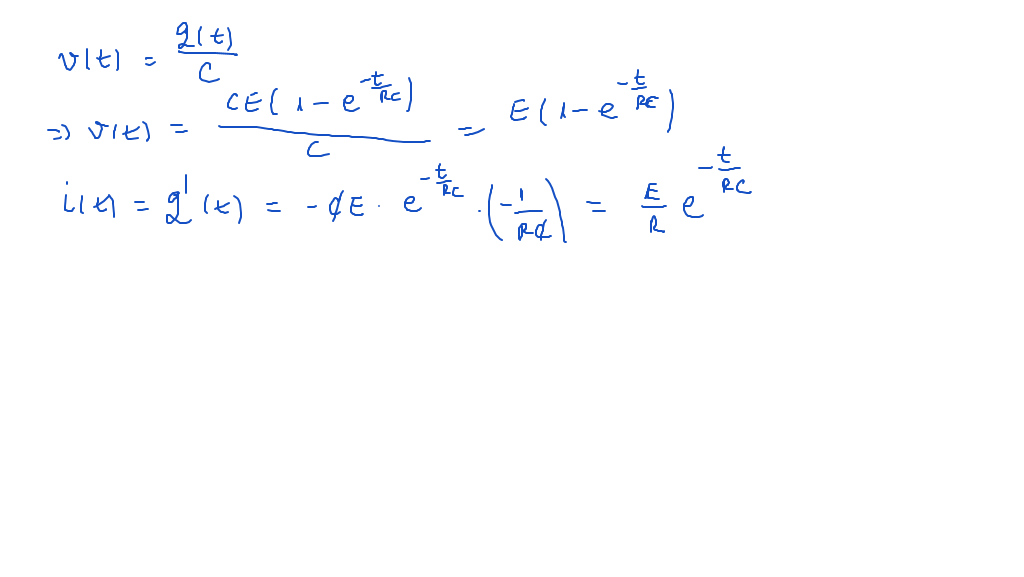 v(t) = q(t)/C
=> v(t) = CE(1 - e^(-t/RC))/C = E(1 - e^(-t/RC))
i(t) = q'(t) = -CE · e^(-t/RC) · (-1/RC) = E/R e^(-t/RC)